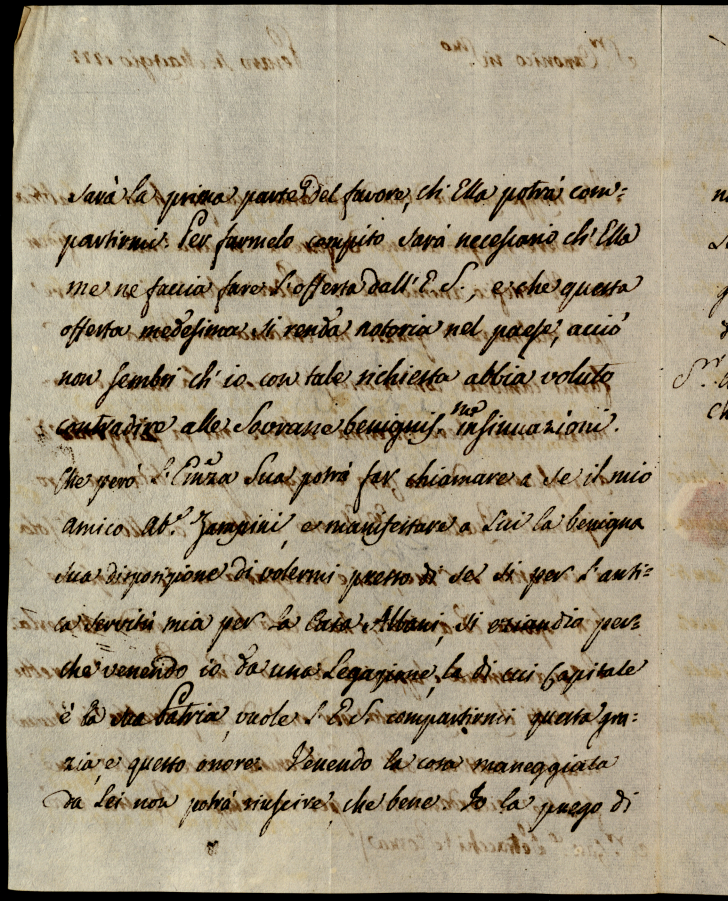 sarà la prima parte del favore, ch'Ella potrà com=
partirmi. Per farmelo compito sarà necessario ch'Ella
me ne faccia fare l'offerta dall'E. S., e che questa
offerta medesima si renda notoria nel paese, acciò
non sembri ch'io con tale richiesta abbia voluto
contradire alle Sovrane benignis.me insinuazioni.
Che però l'Em̃za Sua potrà far chiamare a se il mio
amico Ab.e Zampini, e manifestare a Lui la benigna
sua disposizione di volermi presso di se sì per l'anti=
ca servitù mia per la Casa Albani, sì eziandio per=
che venendo io da una Legazione, la di cui Capitale
è la sua Patria, vuole l'E. S. compartirmi questa gra=
zia, e questo onore. Venendo la cosa maneggiata
da Lei non potrà riuscire, che bene. Io la prego di